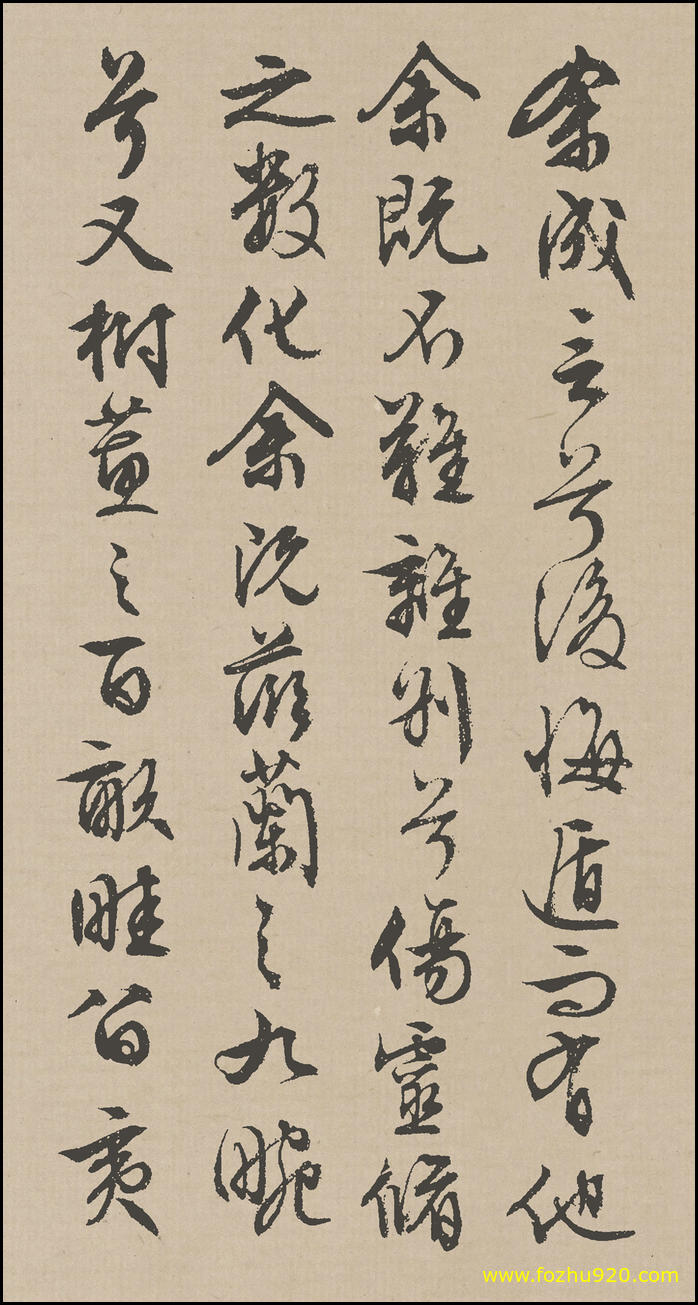 余成言兮後悔遁而有他
余既不難離別兮傷靈脩
之數化余既滋蘭之九畹
兮又樹蕙之百畝畦留夷
www.fozhu920.com